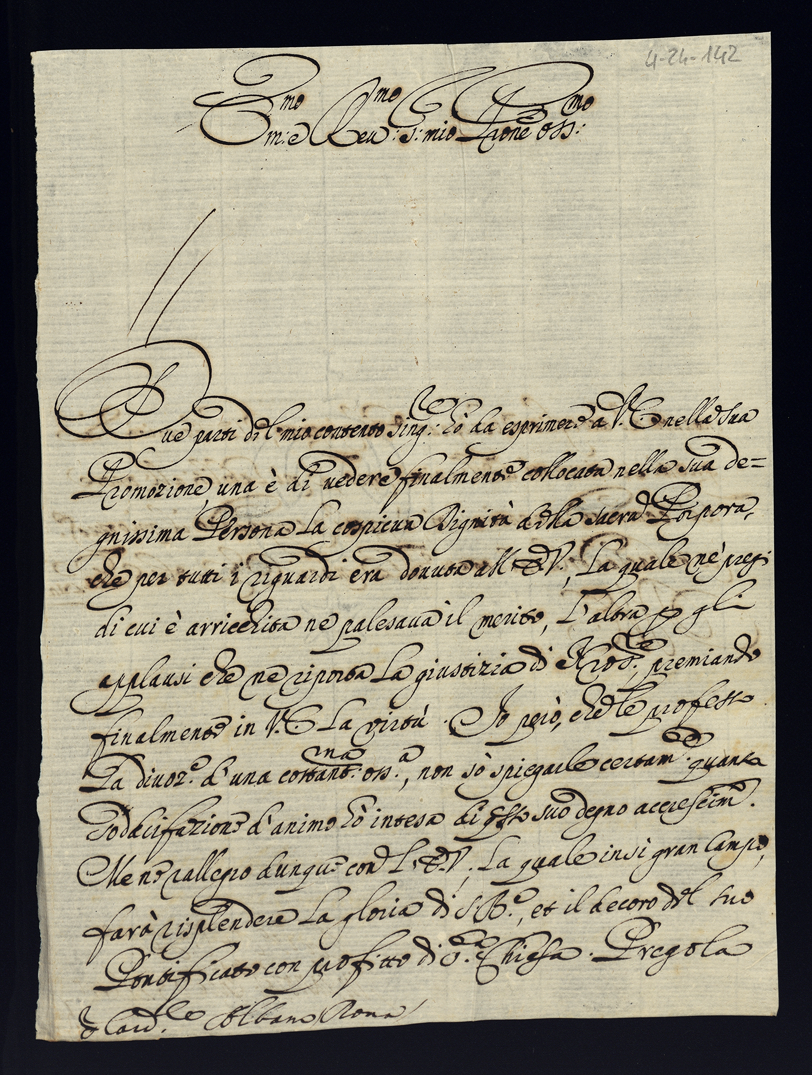 4-24-142
Em:mo e Reu:mo S: mio Prone oss:mo
Due parti del mio contento sing:re hò da esprimere a V. E. nella sua
Promozione, una è di vedere finalmente collocata nella sua de=
gnissima Persona la cospicua Dignità della sacra Porpora,
che per tutti i riguardi era douuta all' E. V., la quale ne' pregi
di cui è arricchita ne palesaua il merito, L'altra p gli
applausi che ne riporta la giustizia di N. Sig:re, premiando
finalmente in V. E. la virtù. Io però, che le professo
la diuoz:e d'una costant:ma oss:a, non sò spiegarle certam:te quanta
sodisfazione d'animo hò intesa di qsto suo degno accrescim:.
Me ne rallegro dunque con l'E. V., la quale in si gran Campo,
farà risplendere la gloria di S. B.e, et il decoro del suo
Pontificato con profitto di S.a Chiesa. Pregola
S Card.le Albani Roma